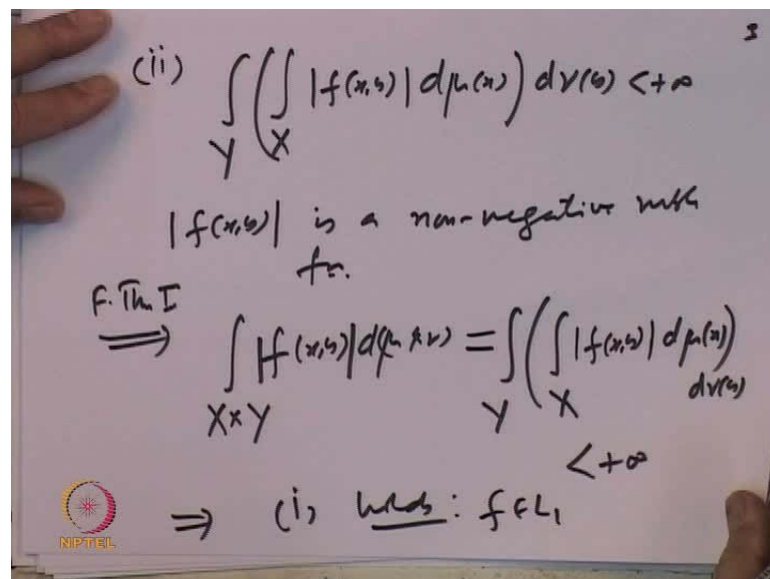 3
(ii) ∫_Y ( ∫_X |f(x,y)| dμ(x) ) dν(y) < +∞
|f(x,y)| is a non-negative msble
fn.
F. Thm I
⟹ ∫_{X×Y} |f(x,y)| d(μ×ν) = ∫_Y ( ∫_X |f(x,y)| dμ(x) )
dν(y)
< +∞
⟹ (i) holds : f ∈ L₁
NPTEL